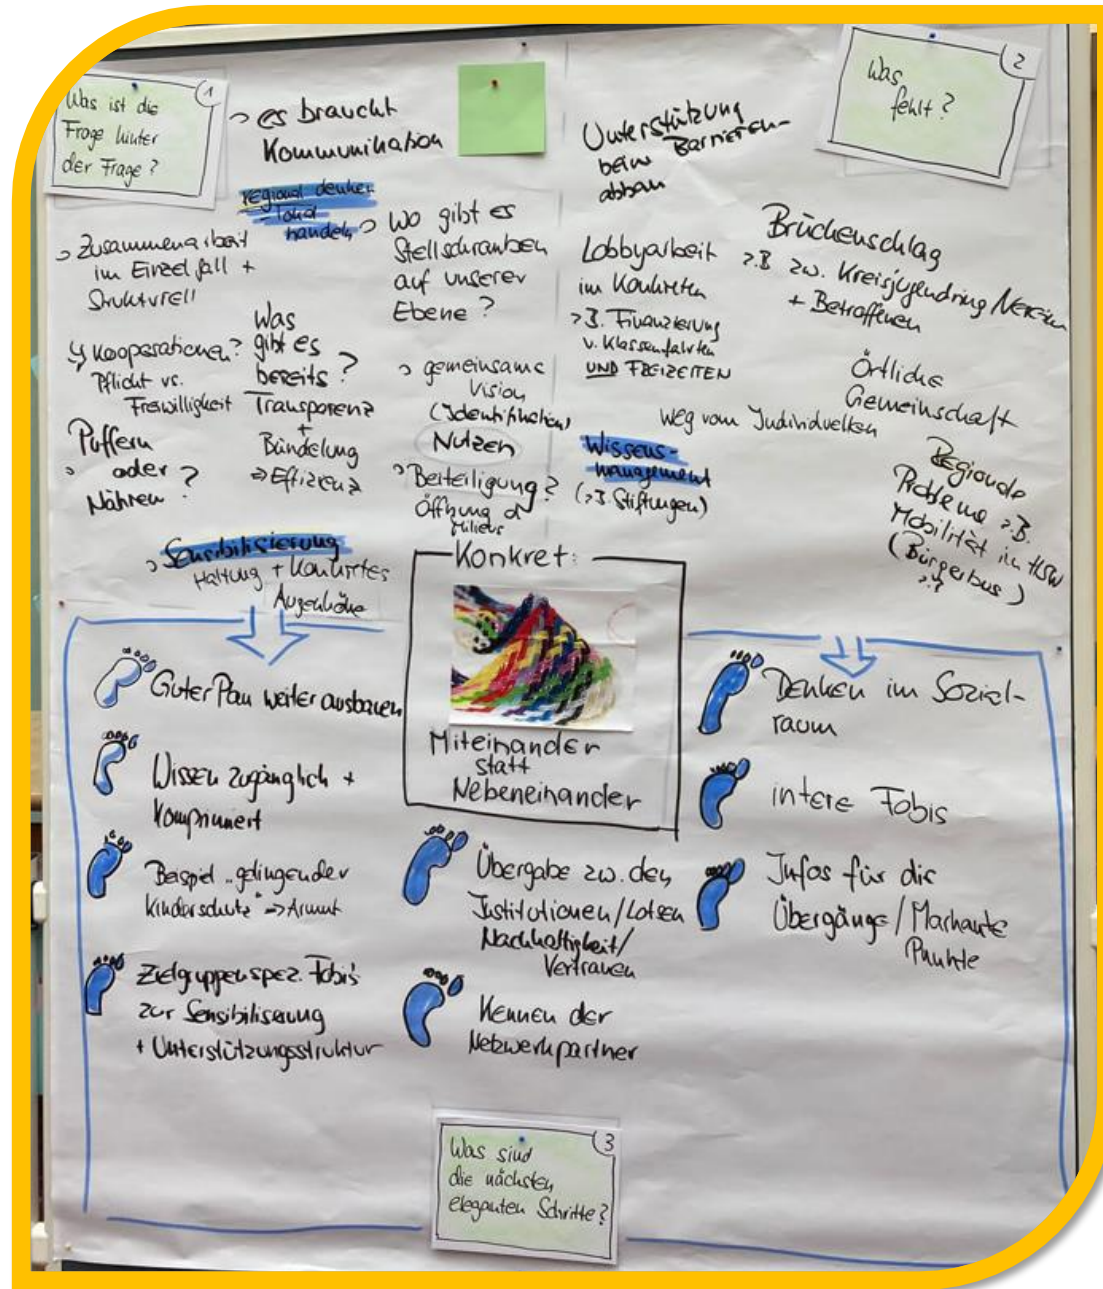 1
Was ist die
Frage hinter
der Frage?
es braucht
Kommunikation
regional denken
lokal
handeln
Zusammenarbeit
im Einzelfall +
Strukturell
Kooperationen?
Pflicht vs.
Freiwilligkeit
Puffern
oder
Nähren?
Was
gibt es
bereits?
Transparenz
+
Bündelung
⇒ Effizienz
Wo gibt es
Stellschrauben
auf unserer
Ebene?
gemeinsame
Vision
(Identifikation)
Nutzen
Beiteiligung?
Öffnung d
Milieus
Sensibilisierung
Haltung + Konkretes
Augenhöhe
2
Was
fehlt?
Unterstützung
beim Barrieren-
abbau
Lobbyarbeit
im Konkreten
z.B. Finanzierung
v. Klassenfahrten
UND FREIZEITEN
Brückenschlag
z.B zw. Kreisjugendring
+ Betroffenen
Örtliche
Gemeinschaft
weg vom Individuellen
Wissens-
management
(z.B. Stiftungen)
Regionale
Probleme z.B.
Mobilität im HSW
(Bürgerbus)
Konkret:
Miteinander
statt
Nebeneinander
Guter Plan weiter ausbauen
Wissen zugänglich +
Komprimiert
Beispiel "gelingender
Kinderschutz" → Armut
Zielgruppenspez. Fobi's
zur Sensibilisierung
+ Unterstützungsstruktur
Übergabe zw. den
Institutionen/Lotsen
Nachhaltigkeit/
Vertrauen
Kennen der
Netzwerkpartner
Denken im Sozial-
raum
intere Fobis
Infos für die
Übergänge/Markante
Punkte
3
Was sind
die nächsten
eleganten Schritte?